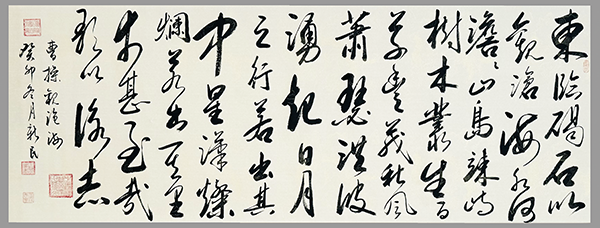 東臨碣石以
觀滄海水何
澹々山島竦峙
樹木叢生百
草豐茂秋風
蕭瑟洪波
湧起日月
之行若出其
中星漢燦
爛若出其里
幸甚至哉
歌以詠志
曹操觀滄海
癸卯冬月新民